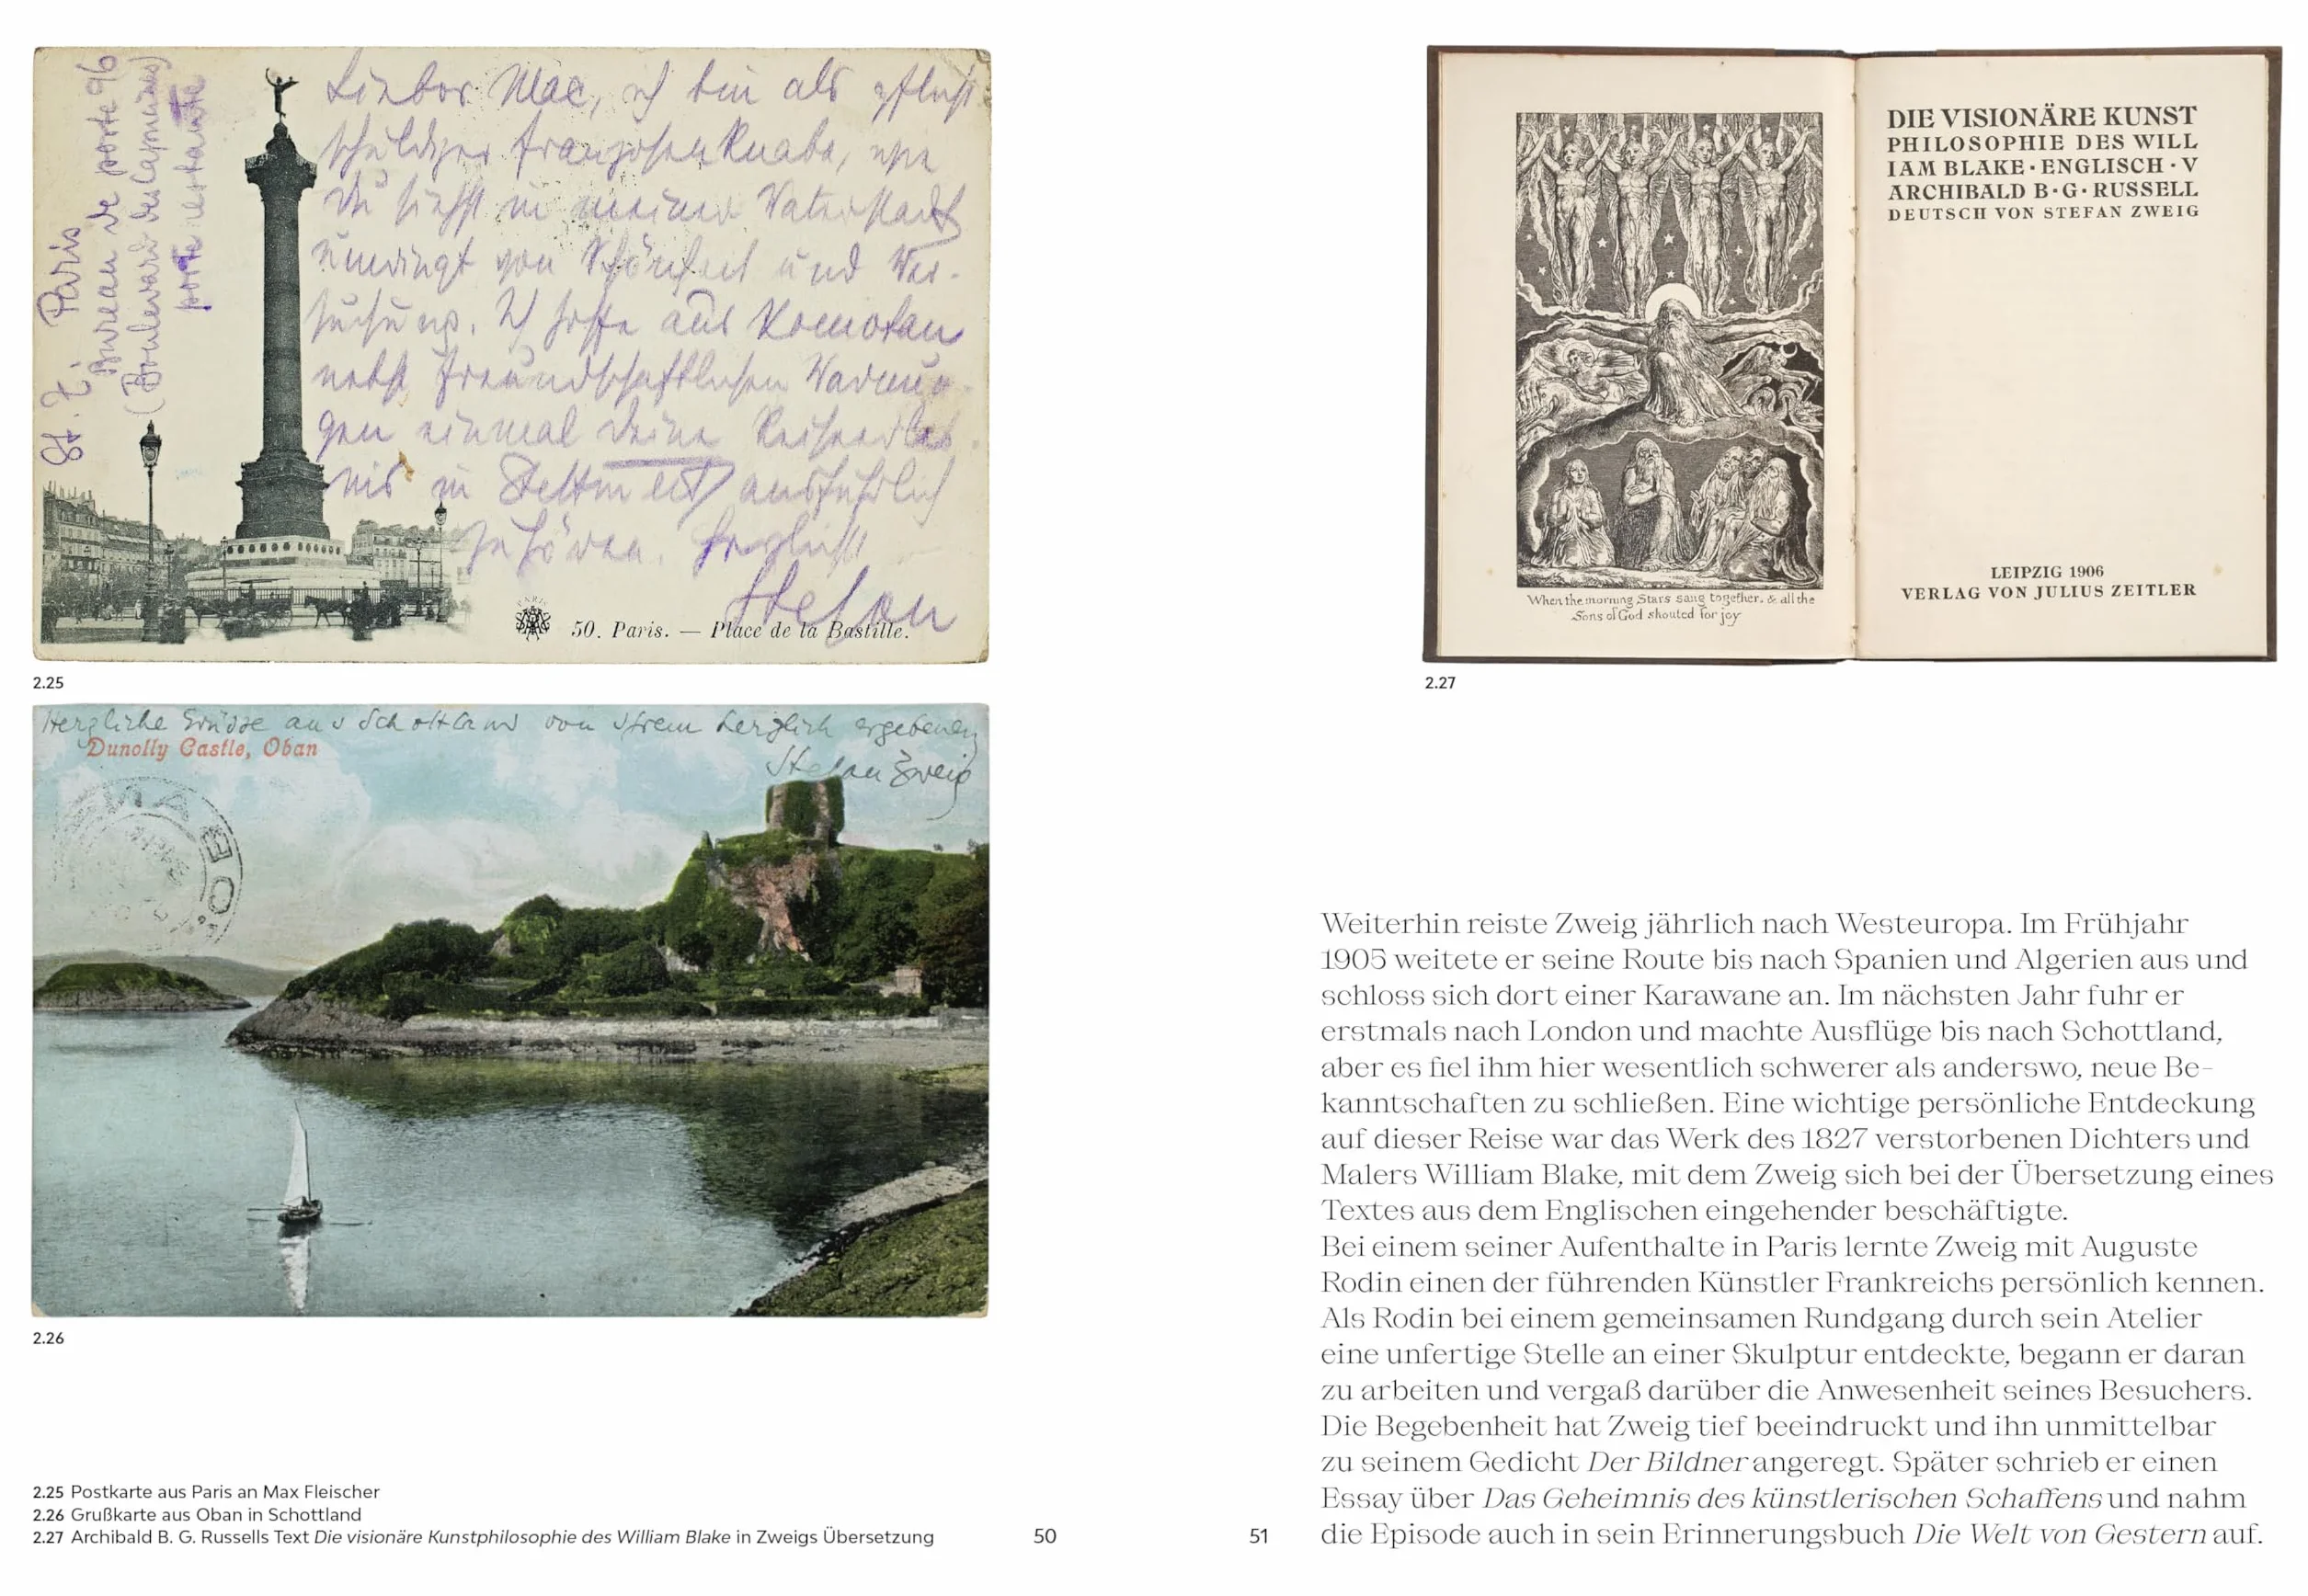 St. Z. Paris
Bureau de poste 96
(Boulevard des Capucines)
poste restante
Lieber Max, ich bin als pflicht
schuldiger Franzosenknabe, wie
Du siehst in meiner Vaterstadt
umringt von Schönheit und Ver-
suchung. Ich hoffe aus Komotau
nebst freundschaftlichen Warnun-
gen einmal Deine Reiseerleb-
nis in Stettin ausführlich
zu hören. Herzlichst
Stefan
50. Paris. — Place de la Bastille.
2.25
Herzliche Grüsse aus Schottland von Ihrem herzlich ergebenen
Dunolly Castle, Oban
Stefan Zweig
2.26
2.25 Postkarte aus Paris an Max Fleischer
2.26 Grußkarte aus Oban in Schottland
2.27 Archibald B. G. Russells Text Die visionäre Kunstphilosophie des William Blake in Zweigs Übersetzung
50
When the morning Stars sang together, & all the
Sons of God shouted for joy
DIE VISIONÄRE KUNST
PHILOSOPHIE DES WILL
IAM BLAKE · ENGLISCH · V
ARCHIBALD B · G · RUSSELL
DEUTSCH VON STEFAN ZWEIG
LEIPZIG 1906
VERLAG VON JULIUS ZEITLER
2.27
Weiterhin reiste Zweig jährlich nach Westeuropa. Im Frühjahr
1905 weitete er seine Route bis nach Spanien und Algerien aus und
schloss sich dort einer Karawane an. Im nächsten Jahr fuhr er
erstmals nach London und machte Ausflüge bis nach Schottland,
aber es fiel ihm hier wesentlich schwerer als anderswo, neue Be-
kanntschaften zu schließen. Eine wichtige persönliche Entdeckung
auf dieser Reise war das Werk des 1827 verstorbenen Dichters und
Malers William Blake, mit dem Zweig sich bei der Übersetzung eines
Textes aus dem Englischen eingehender beschäftigte.
Bei einem seiner Aufenthalte in Paris lernte Zweig mit Auguste
Rodin einen der führenden Künstler Frankreichs persönlich kennen.
Als Rodin bei einem gemeinsamen Rundgang durch sein Atelier
eine unfertige Stelle an einer Skulptur entdeckte, begann er daran
zu arbeiten und vergaß darüber die Anwesenheit seines Besuchers.
Die Begebenheit hat Zweig tief beeindruckt und ihn unmittelbar
zu seinem Gedicht Der Bildner angeregt. Später schrieb er einen
Essay über Das Geheimnis des künstlerischen Schaffens und nahm
die Episode auch in sein Erinnerungsbuch Die Welt von Gestern auf.
51